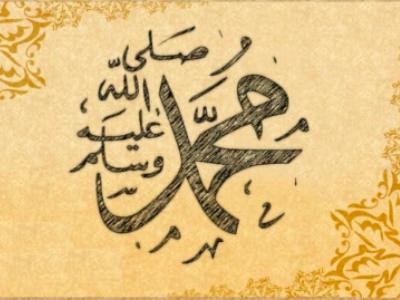 محمد
صلى
الله
عليه
وسلم